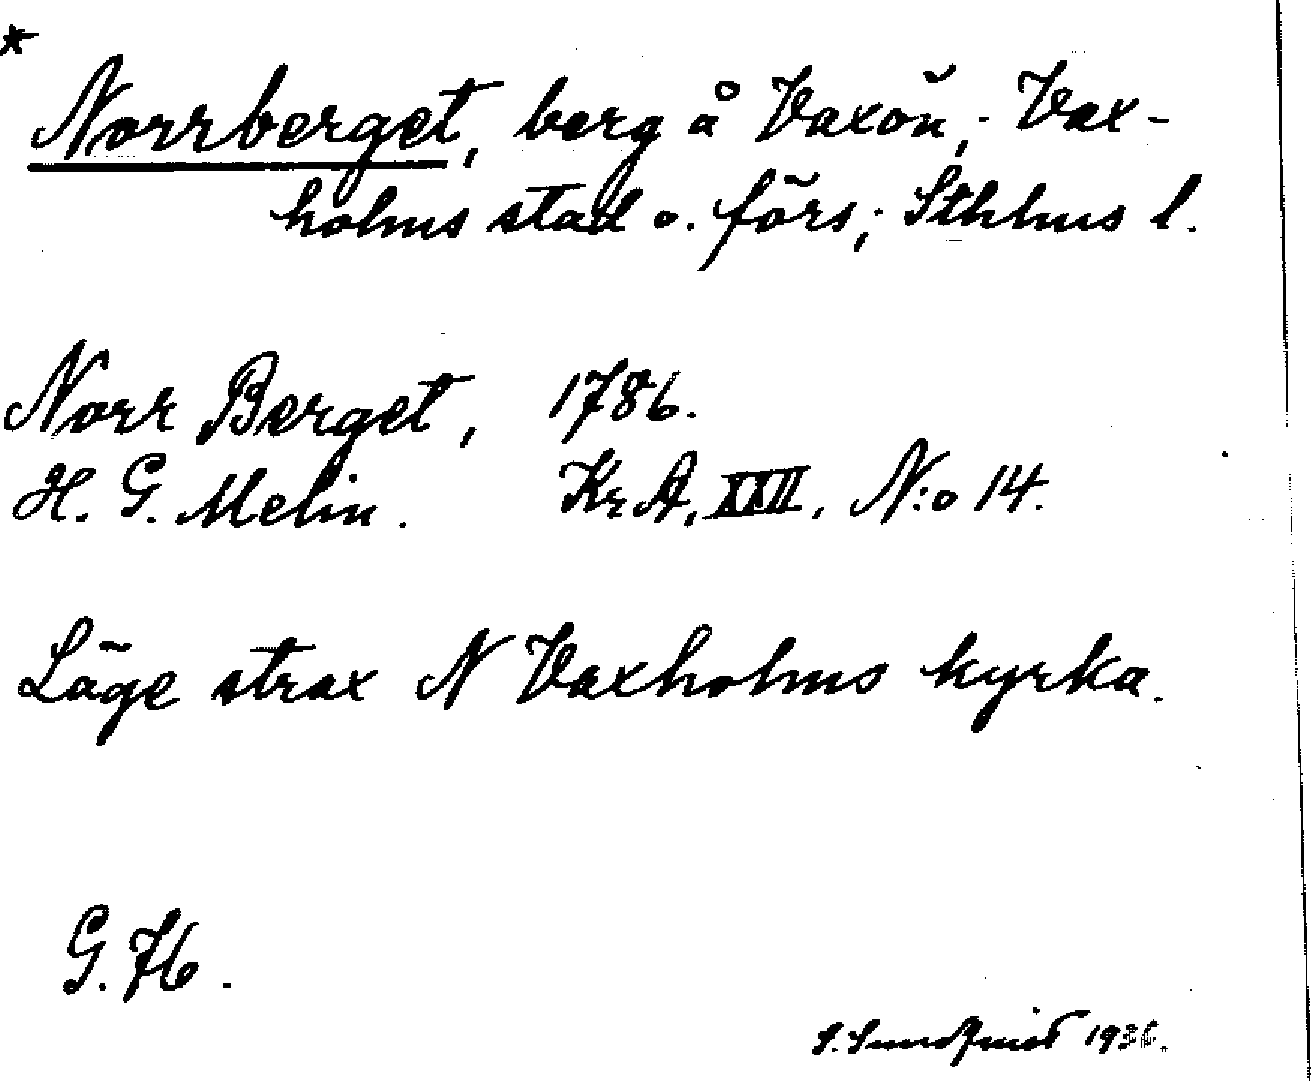 *
Norrberget, berg å Vaxön, Vax-
holms stad o. förs, Sthlms l.
Norr Berget, 1786.
H. G. Melin. KrA, XXII, N:o 14.
Läge strax N Vaxholms kyrka.
G. 76.
S. Sundquist 1936.